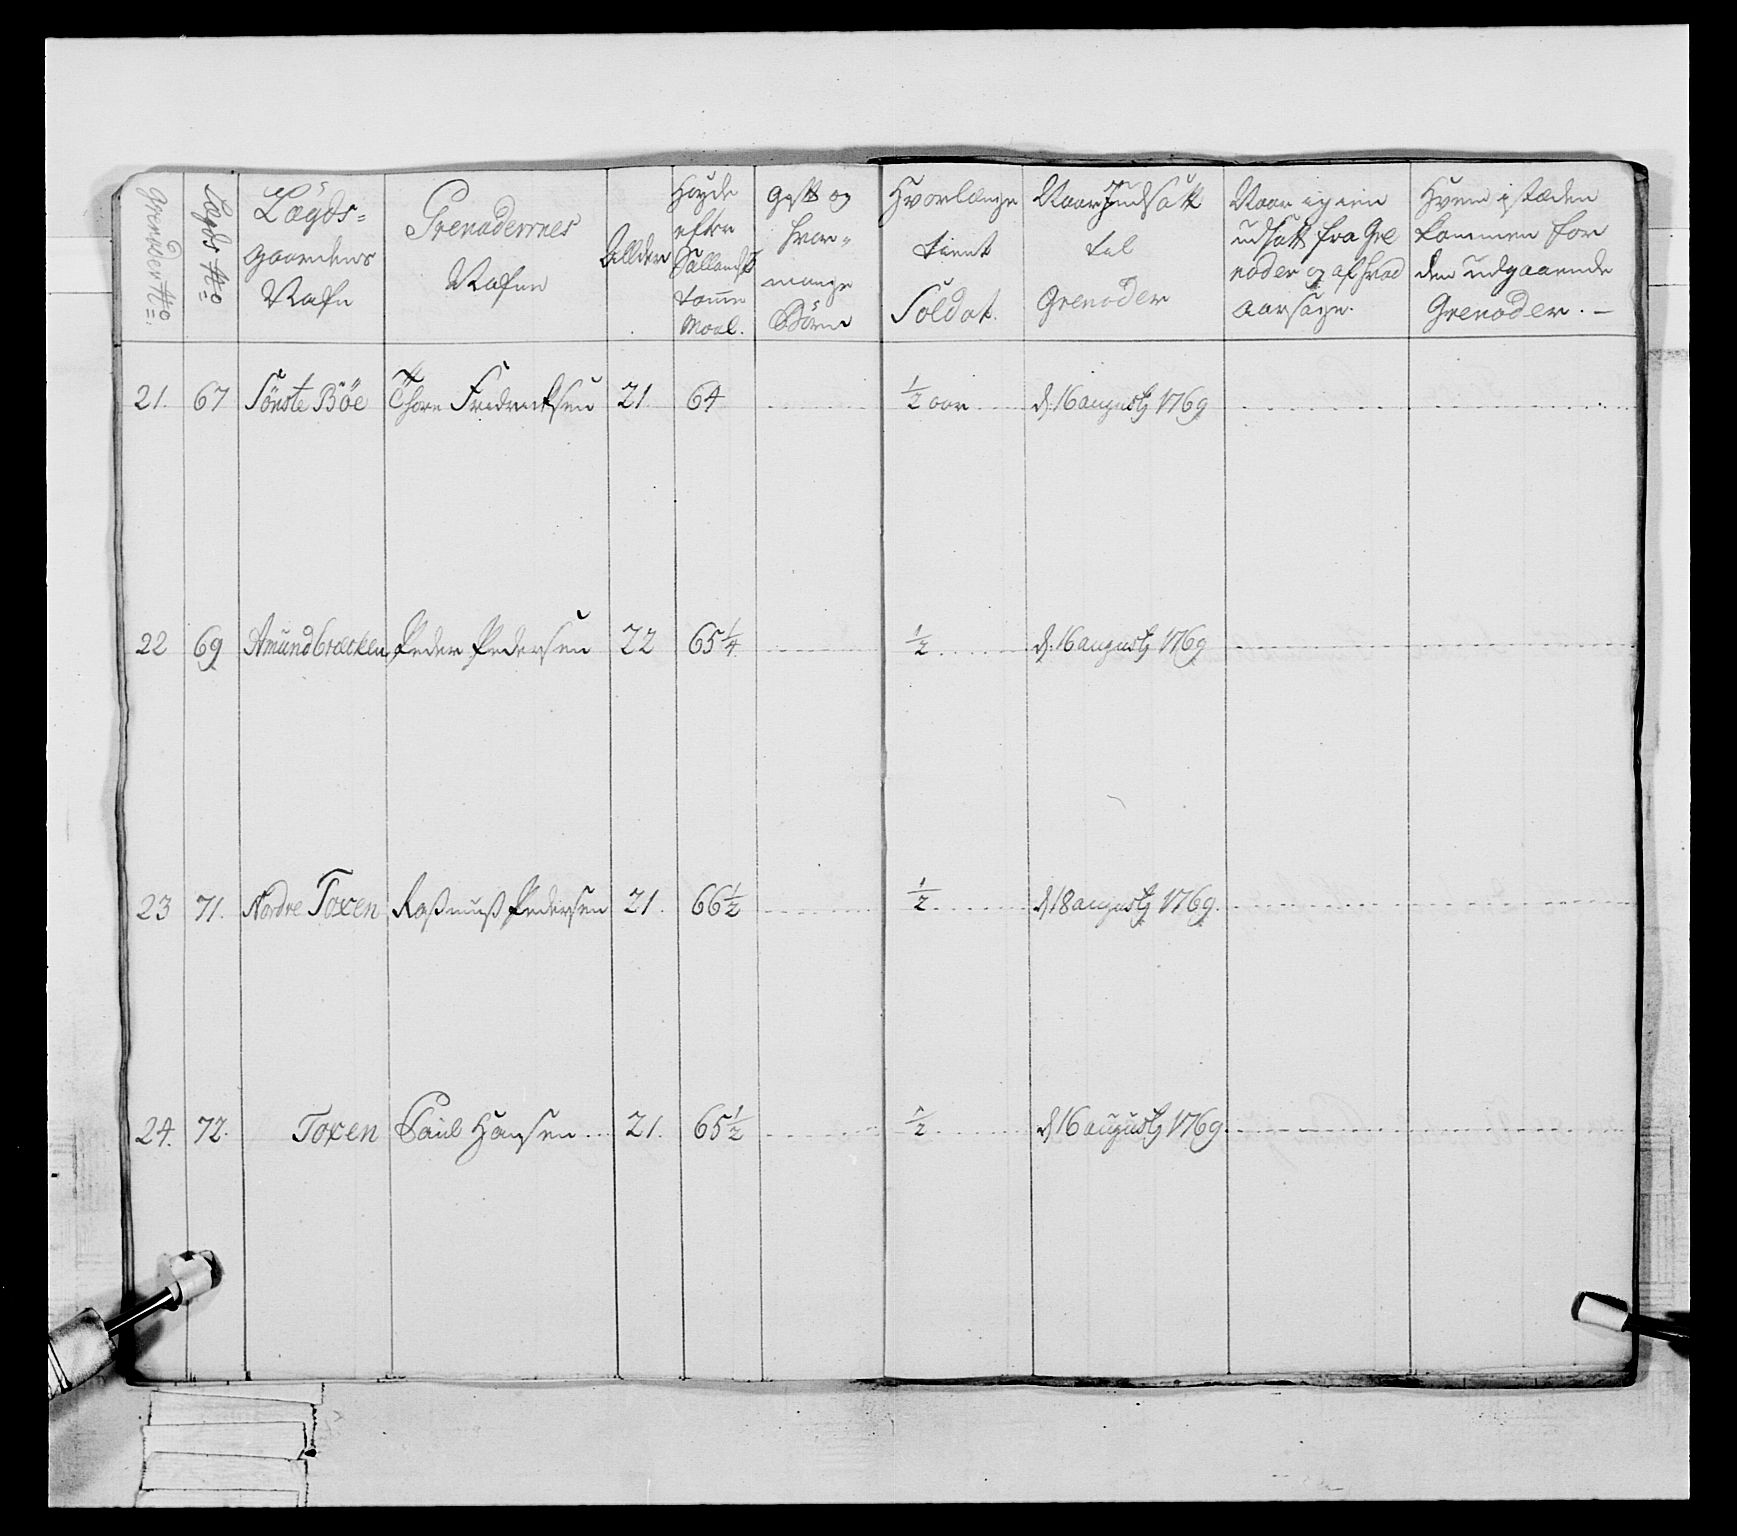 Grenader No
Lægds No
Lægds-
gaardens
Nafn
Grenadernes
Nafne
Allder
Høyde
efter
Sallands
tomme
Maal.
Gift og
hvor-
mange
Börn
Hvorlænge
tient
Soldat.
Naar Indsatt
til
Grenader
Naar igien
udsatt fra Gre
nader og af hvad
aarsage.
Hvem i stæden
kommen for
den udgaaende
Grenader. —
21. 67 Sönste Böe Thore Fredricksen 21. 64 ½ aar d. 16 augusty 1769
22 69 Amundbræcken Peder Pedersen 22 65 ¼ ½ d. 16 augusty 1769
23 71. Nordre Toxen Rasmus Pedersen 21. 66 ½ ½ d. 18 augusty 1769.
24. 72. Toxen Paul Hansen 21. 65 ½ ½ d. 16 augusty 1769.